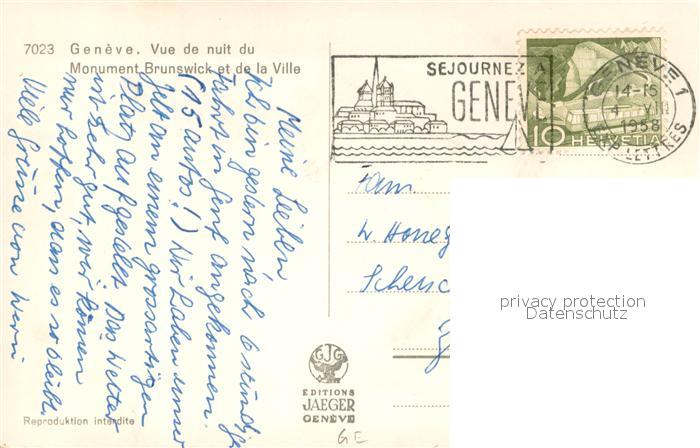 7023 Genève. Vue de nuit du
Monument Brunswick et de la Ville
Meine Lieben
Ich bin gestern nach 6 stündiger
Fahrt in Genf angekommen.
(15 autos!) Wir haben unser
Zelt an einem grossartigen
Platz aufgestellt. Das Wetter
ist sehr gut, wir können
nur hoffen, dass es so bleibt.
Viele Grüsse von Werni
Reproduction interdite
SEJOURNEZ A
GENEVE
GENÈVE 1
14-15
4. VIII
1958
LETTRES
10 HELVETIA
Fam.
W. Honeg
Scheuc
GJG
EDITIONS
JAEGER
GENEVE
GE
privacy protection
Datenschutz